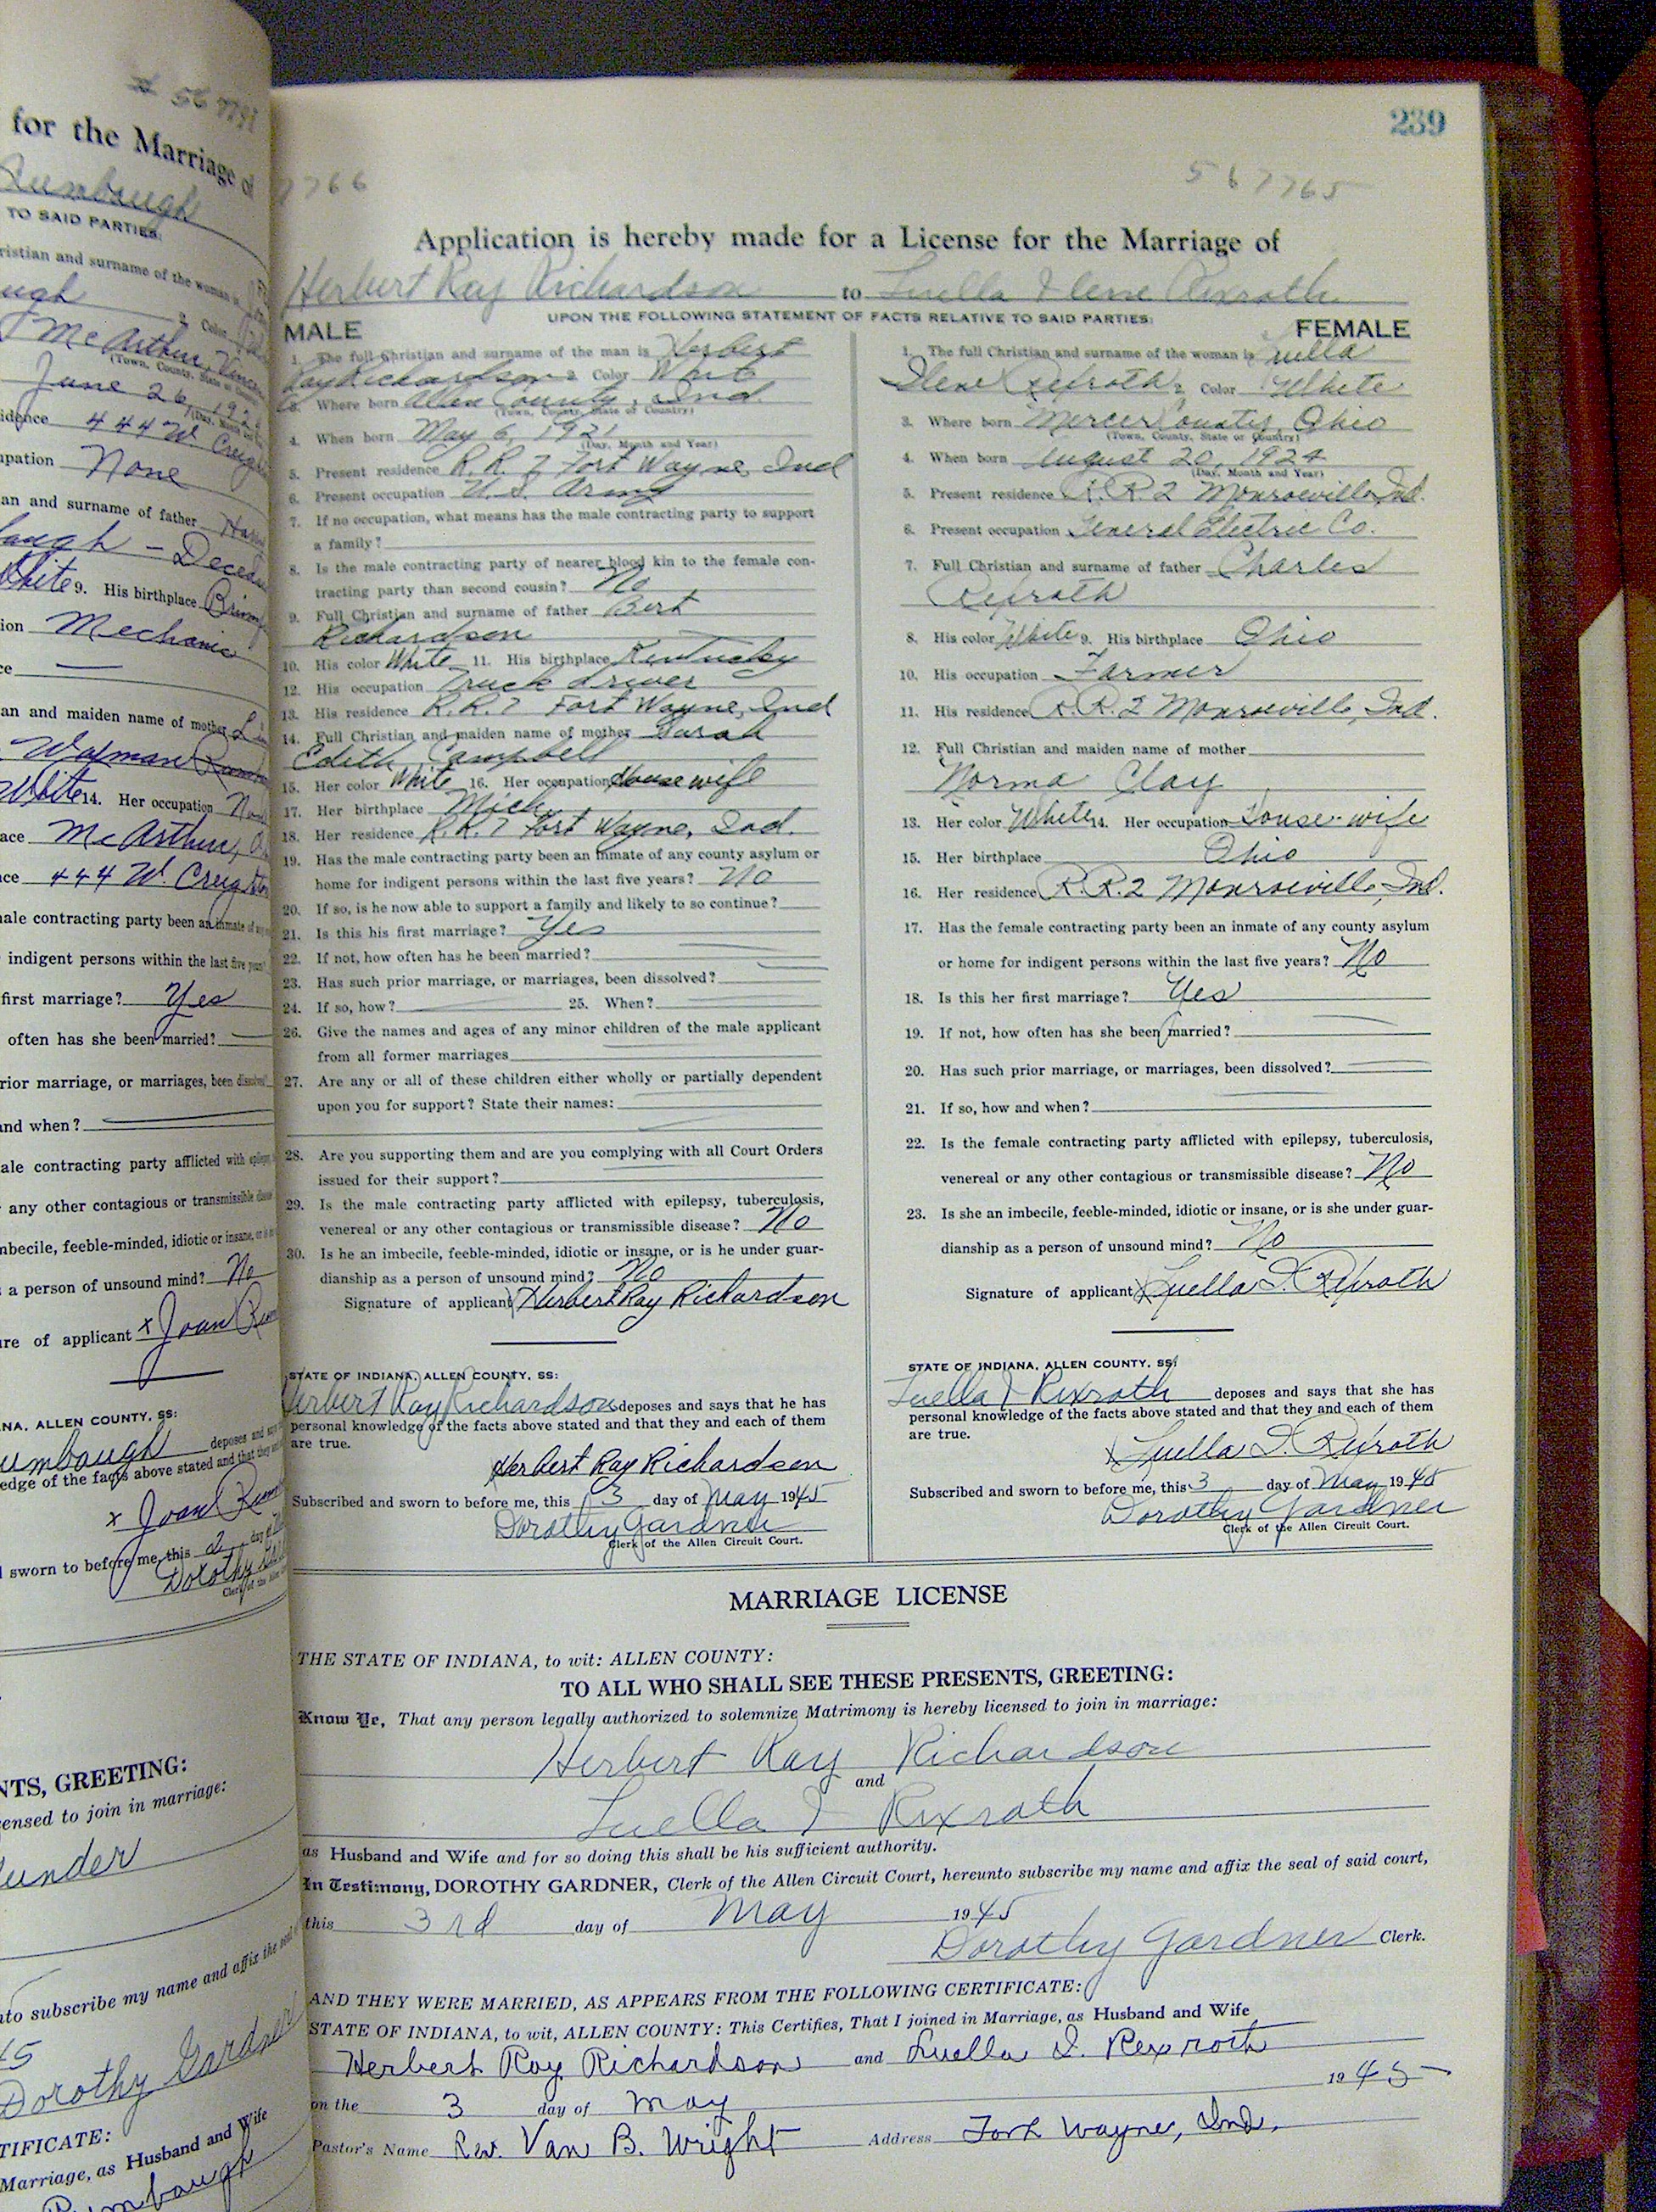 # 567791
for the Marriage of
Rumbaugh
TO SAID PARTIES:
ristian and surname of the woman is
ugh 2. Color
McArthur,
(Town, County, State or
June 26, 192
(Day, Month and
idence 444 W. Creigh
upation None
an and surname of father
augh — Deceas
White 9. His birthplace
ion Mechanic
ce
an and maiden name of mother
White 14. Her occupation
ace McArthur, O
ce 444 W. Creighton
ale contracting party been an inmate of any
indigent persons within the last five years?
first marriage? Yes
often has she been married?
rior marriage, or marriages, been dissolved?
and when?
ale contracting party afflicted with epilepsy,
any other contagious or transmissible disease
mbecile, feeble-minded, idiotic or insane, or is
a person of unsound mind? No
ure of applicant x Joan Rum
NA, ALLEN COUNTY, SS:
umbaugh deposes and says
edge of the facts above stated and that they
x Joan Rum
sworn to before me, this 2 day of
Dorothy
Clerk of the Allen
NTS, GREETING:
ensed to join in marriage:
under
nto subscribe my name and affix the seal
45
Dorothy Gardner
TIFICATE:
Marriage, as Husband and Wife
Rumbaugh
239
7766 567765
Application is hereby made for a License for the Marriage of
Herbert Ray Richardson to Luella Ilene Rexroth
UPON THE FOLLOWING STATEMENT OF FACTS RELATIVE TO SAID PARTIES:
MALE
1. The full Christian and surname of the man is Herbert
Ray Richardson 2. Color White
3. Where born Allen County, Ind.
(Town, County, State or Country)
4. When born May 6, 1921
(Day, Month and Year)
5. Present residence R.R. 7 Fort Wayne, Ind
6. Present occupation U.S. Army
7. If no occupation, what means has the male contracting party to support
a family?
8. Is the male contracting party of nearer blood kin to the female con-
tracting party than second cousin? No
9. Full Christian and surname of father Bert
Richardson
10. His color White 11. His birthplace Kentucky
12. His occupation Truck driver
13. His residence R.R. 7 Fort Wayne, Ind
14. Full Christian and maiden name of mother Sarah
Edith Campbell
15. Her color White 16. Her occupation Housewife
17. Her birthplace Mich.
18. Her residence R.R. 7 Fort Wayne, Ind.
19. Has the male contracting party been an inmate of any county asylum or
home for indigent persons within the last five years? No
20. If so, is he now able to support a family and likely to so continue?
21. Is this his first marriage? Yes
22. If not, how often has he been married?
23. Has such prior marriage, or marriages, been dissolved?
24. If so, how? 25. When?
26. Give the names and ages of any minor children of the male applicant
from all former marriages
27. Are any or all of these children either wholly or partially dependent
upon you for support? State their names:
28. Are you supporting them and are you complying with all Court Orders
issued for their support?
29. Is the male contracting party afflicted with epilepsy, tuberculosis,
venereal or any other contagious or transmissible disease? No
30. Is he an imbecile, feeble-minded, idiotic or insane, or is he under guar-
dianship as a person of unsound mind? No
Signature of applicant Herbert Ray Richardson
STATE OF INDIANA, ALLEN COUNTY, SS:
Herbert Ray Richardson deposes and says that he has
personal knowledge of the facts above stated and that they and each of them
are true.
Herbert Ray Richardson
Subscribed and sworn to before me, this 3 day of May 1945
Dorothy Gardner
Clerk of the Allen Circuit Court.
FEMALE
1. The full Christian and surname of the woman is Luella
Ilene Rexroth 2. Color White
3. Where born Mercer County, Ohio
(Town, County, State or Country)
4. When born August 20, 1924
(Day, Month and Year)
5. Present residence R.R. 2 Monroeville, Ind.
6. Present occupation General Electric Co.
7. Full Christian and surname of father Charles
Rexroth
8. His color White 9. His birthplace Ohio
10. His occupation Farmer
11. His residence R.R. 2 Monroeville, Ind.
12. Full Christian and maiden name of mother
Norma Clay
13. Her color White 14. Her occupation House-wife
15. Her birthplace Ohio
16. Her residence R.R. 2 Monroeville, Ind.
17. Has the female contracting party been an inmate of any county asylum
or home for indigent persons within the last five years? No
18. Is this her first marriage? Yes
19. If not, how often has she been married?
20. Has such prior marriage, or marriages, been dissolved?
21. If so, how and when?
22. Is the female contracting party afflicted with epilepsy, tuberculosis,
venereal or any other contagious or transmissible disease? No
23. Is she an imbecile, feeble-minded, idiotic or insane, or is she under guar-
dianship as a person of unsound mind? No
Signature of applicant x Luella I. Rexroth
STATE OF INDIANA, ALLEN COUNTY, SS:
Luella I Rexroth deposes and says that she has
personal knowledge of the facts above stated and that they and each of them
are true.
x Luella I. Rexroth
Subscribed and sworn to before me, this 3 day of May 1945
Dorothy Gardner
Clerk of the Allen Circuit Court.
MARRIAGE LICENSE
THE STATE OF INDIANA, to wit: ALLEN COUNTY:
TO ALL WHO SHALL SEE THESE PRESENTS, GREETING:
Know Ye, That any person legally authorized to solemnize Matrimony is hereby licensed to join in marriage:
Herbert Ray Richardson
and
Luella I Rexroth
as Husband and Wife and for so doing this shall be his sufficient authority.
In Testimony, DOROTHY GARDNER, Clerk of the Allen Circuit Court, hereunto subscribe my name and affix the seal of said court,
this 3rd day of May 1945
Dorothy Gardner Clerk.
AND THEY WERE MARRIED, AS APPEARS FROM THE FOLLOWING CERTIFICATE:
STATE OF INDIANA, to wit, ALLEN COUNTY: This Certifies, That I joined in Marriage, as Husband and Wife
Herbert Ray Richardson and Luella I. Rexroth
on the 3 day of May 1945
Pastor's Name Rev. Van B. Wright Address Fort Wayne, Ind.